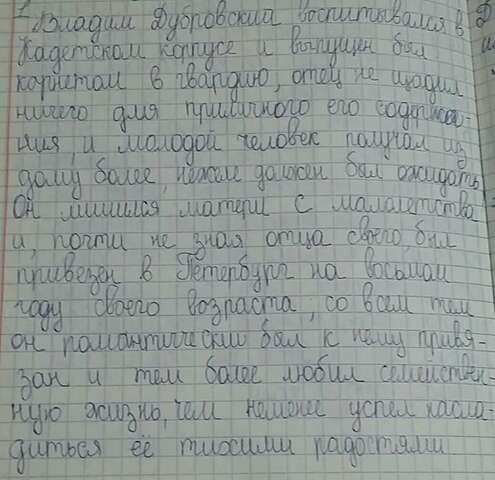 Владим Дубровский воспитывался в
Кадетском корпусе и выпущен был
корнетом в гвардию, отец не щадил
ничего для приличного его содержа-
ния, и молодой человек получал из
дому более, нежели должен был ожидать
Он лишился матери с малолетства
и, почти не зная отца своего, был
привезен в Петербург на восьмом
году своего возраста, со всем тем
он романтически был к нему привя-
зан и тем более любил семействен-
ную жизнь, чем неменее успел насла-
диться её тихими радостями